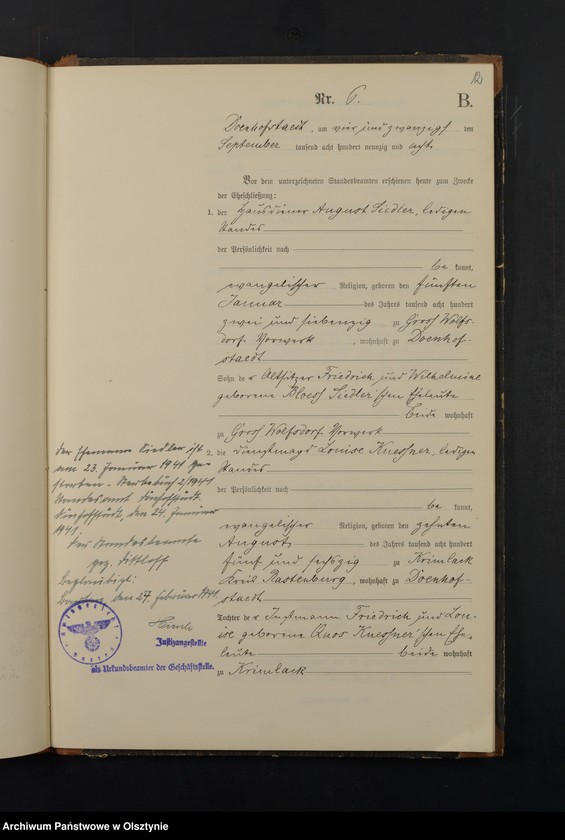 12
Nr. 6. B.
Doenhofstaedt, am vier und zwanzigsten
September tausend acht hundert neunzig und acht.
Vor dem unterzeichneten Standesbeamten erschienen heute zum Zwecke
der Eheschließung:
1. der Hausdiener August Siedler, ledigen
Standes
der Persönlichkeit nach
be kannt,
evangelischer Religion, geboren den fünften
Januar des Jahres tausend acht hundert
zwei und siebenzig zu Gross Wolfs-
dorf Vorwerk, wohnhaft zu Doenhof-
staedt
Sohn der Altsitzer Friedrich und Wilhelmine
geborene Bloess Siedler'schen Eheleute
beide wohnhaft
zu Gross Wolfsdorf Vorwerk
2. die Dienstmagd Louise Kuessner, ledigen
Standes
der Persönlichkeit nach
be kannt,
evangelischer Religion, geboren den zehnten
August des Jahres tausend acht hundert
fünf und sechszig zu Krimlack
Kreis Rastenburg, wohnhaft zu Doenhof-
staedt
Tochter der Instmann Friedrich und Lou-
ise geborene Quoos Kuessner'schen Ehe-
leute beide wohnhaft
zu Krimlack
Der Ehemann Siedler ist
am 23. Januar 1941 ge-
storben - Sterbebuch 2/1941
Standesamt Dönhofstädt.
Dönhofstädt, den 24. Januar
1941.
Der Standesbeamte
gez.
Beglaubigt:
den 27. Februar 1941.
Justizangestellte
als Urkundsbeamter der Geschäftsstelle.
Archiwum Państwowe w Olsztynie